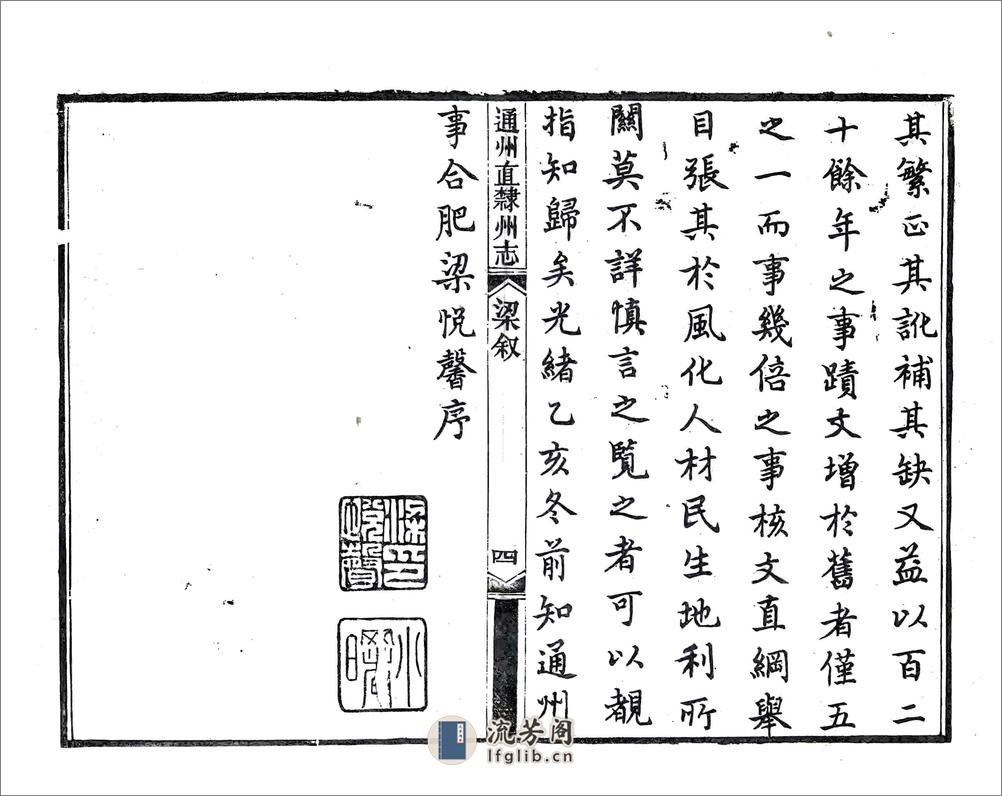 其繁正其訛補其缺又益以百二
十餘年之事蹟文增於舊者僅五
之一而事幾倍之事核文直綱舉
目張其於風化人材民生地利所
關莫不詳慎言之覽之者可以覩
指知歸矣光緒乙亥冬前知通州
通州直隸州志
梁叙
四
事合肥梁悅馨序
流芳阁
lfglib.cn